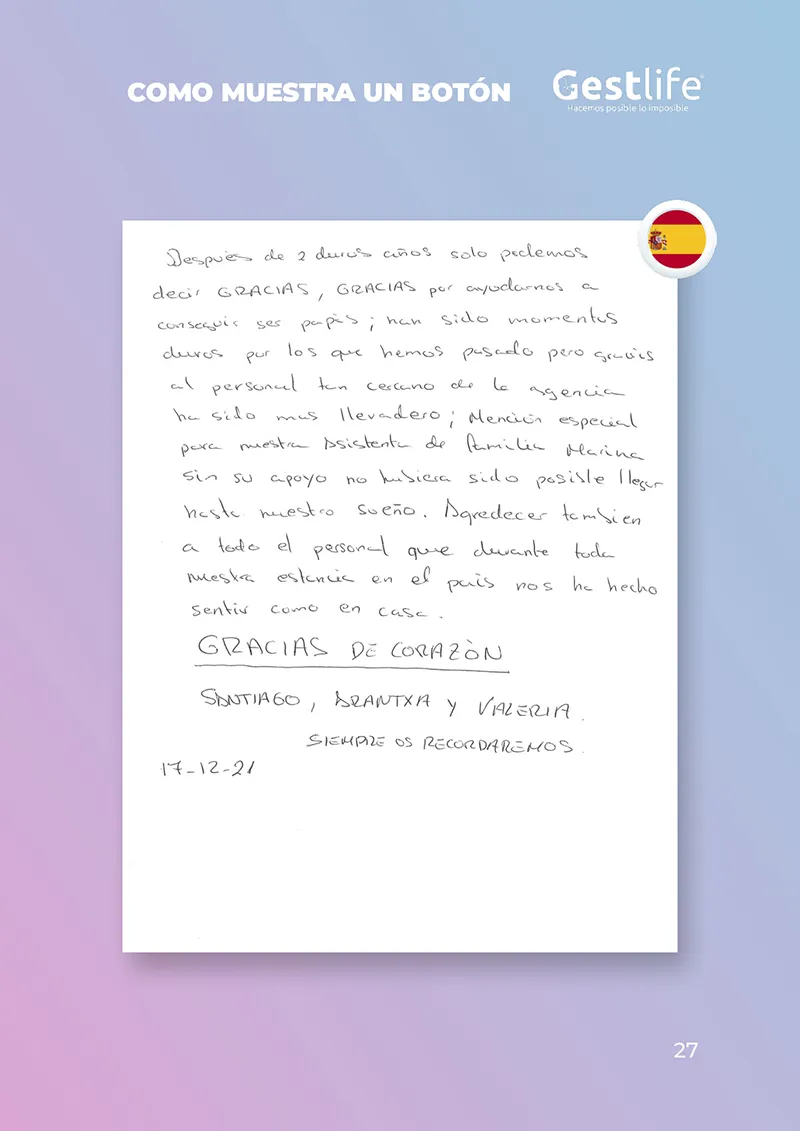 COMO MUESTRA UN BOTÓN
Gestlife
Hacemos posible lo imposible
Después de 2 duros años solo podemos
decir GRACIAS, GRACIAS por ayudarnos a
conseguir ser papis; han sido momentos
duros por los que hemos pasado pero gracias
al personal tan cercano de la agencia
ha sido mas llevadero; Mención especial
para nuestra Asistenta de familia Marina
sin su apoyo no hubiera sido posible llegar
hasta nuestro sueño. Agredecer tambien
a todo el personal que durante toda
nuestra estancia en el pais nos ha hecho
sentir como en casa.
GRACIAS DE CORAZÒN
SANTIAGO, ARANTXA Y VALERIA.
SIEMPRE OS RECORDAREMOS.
17-12-21
27